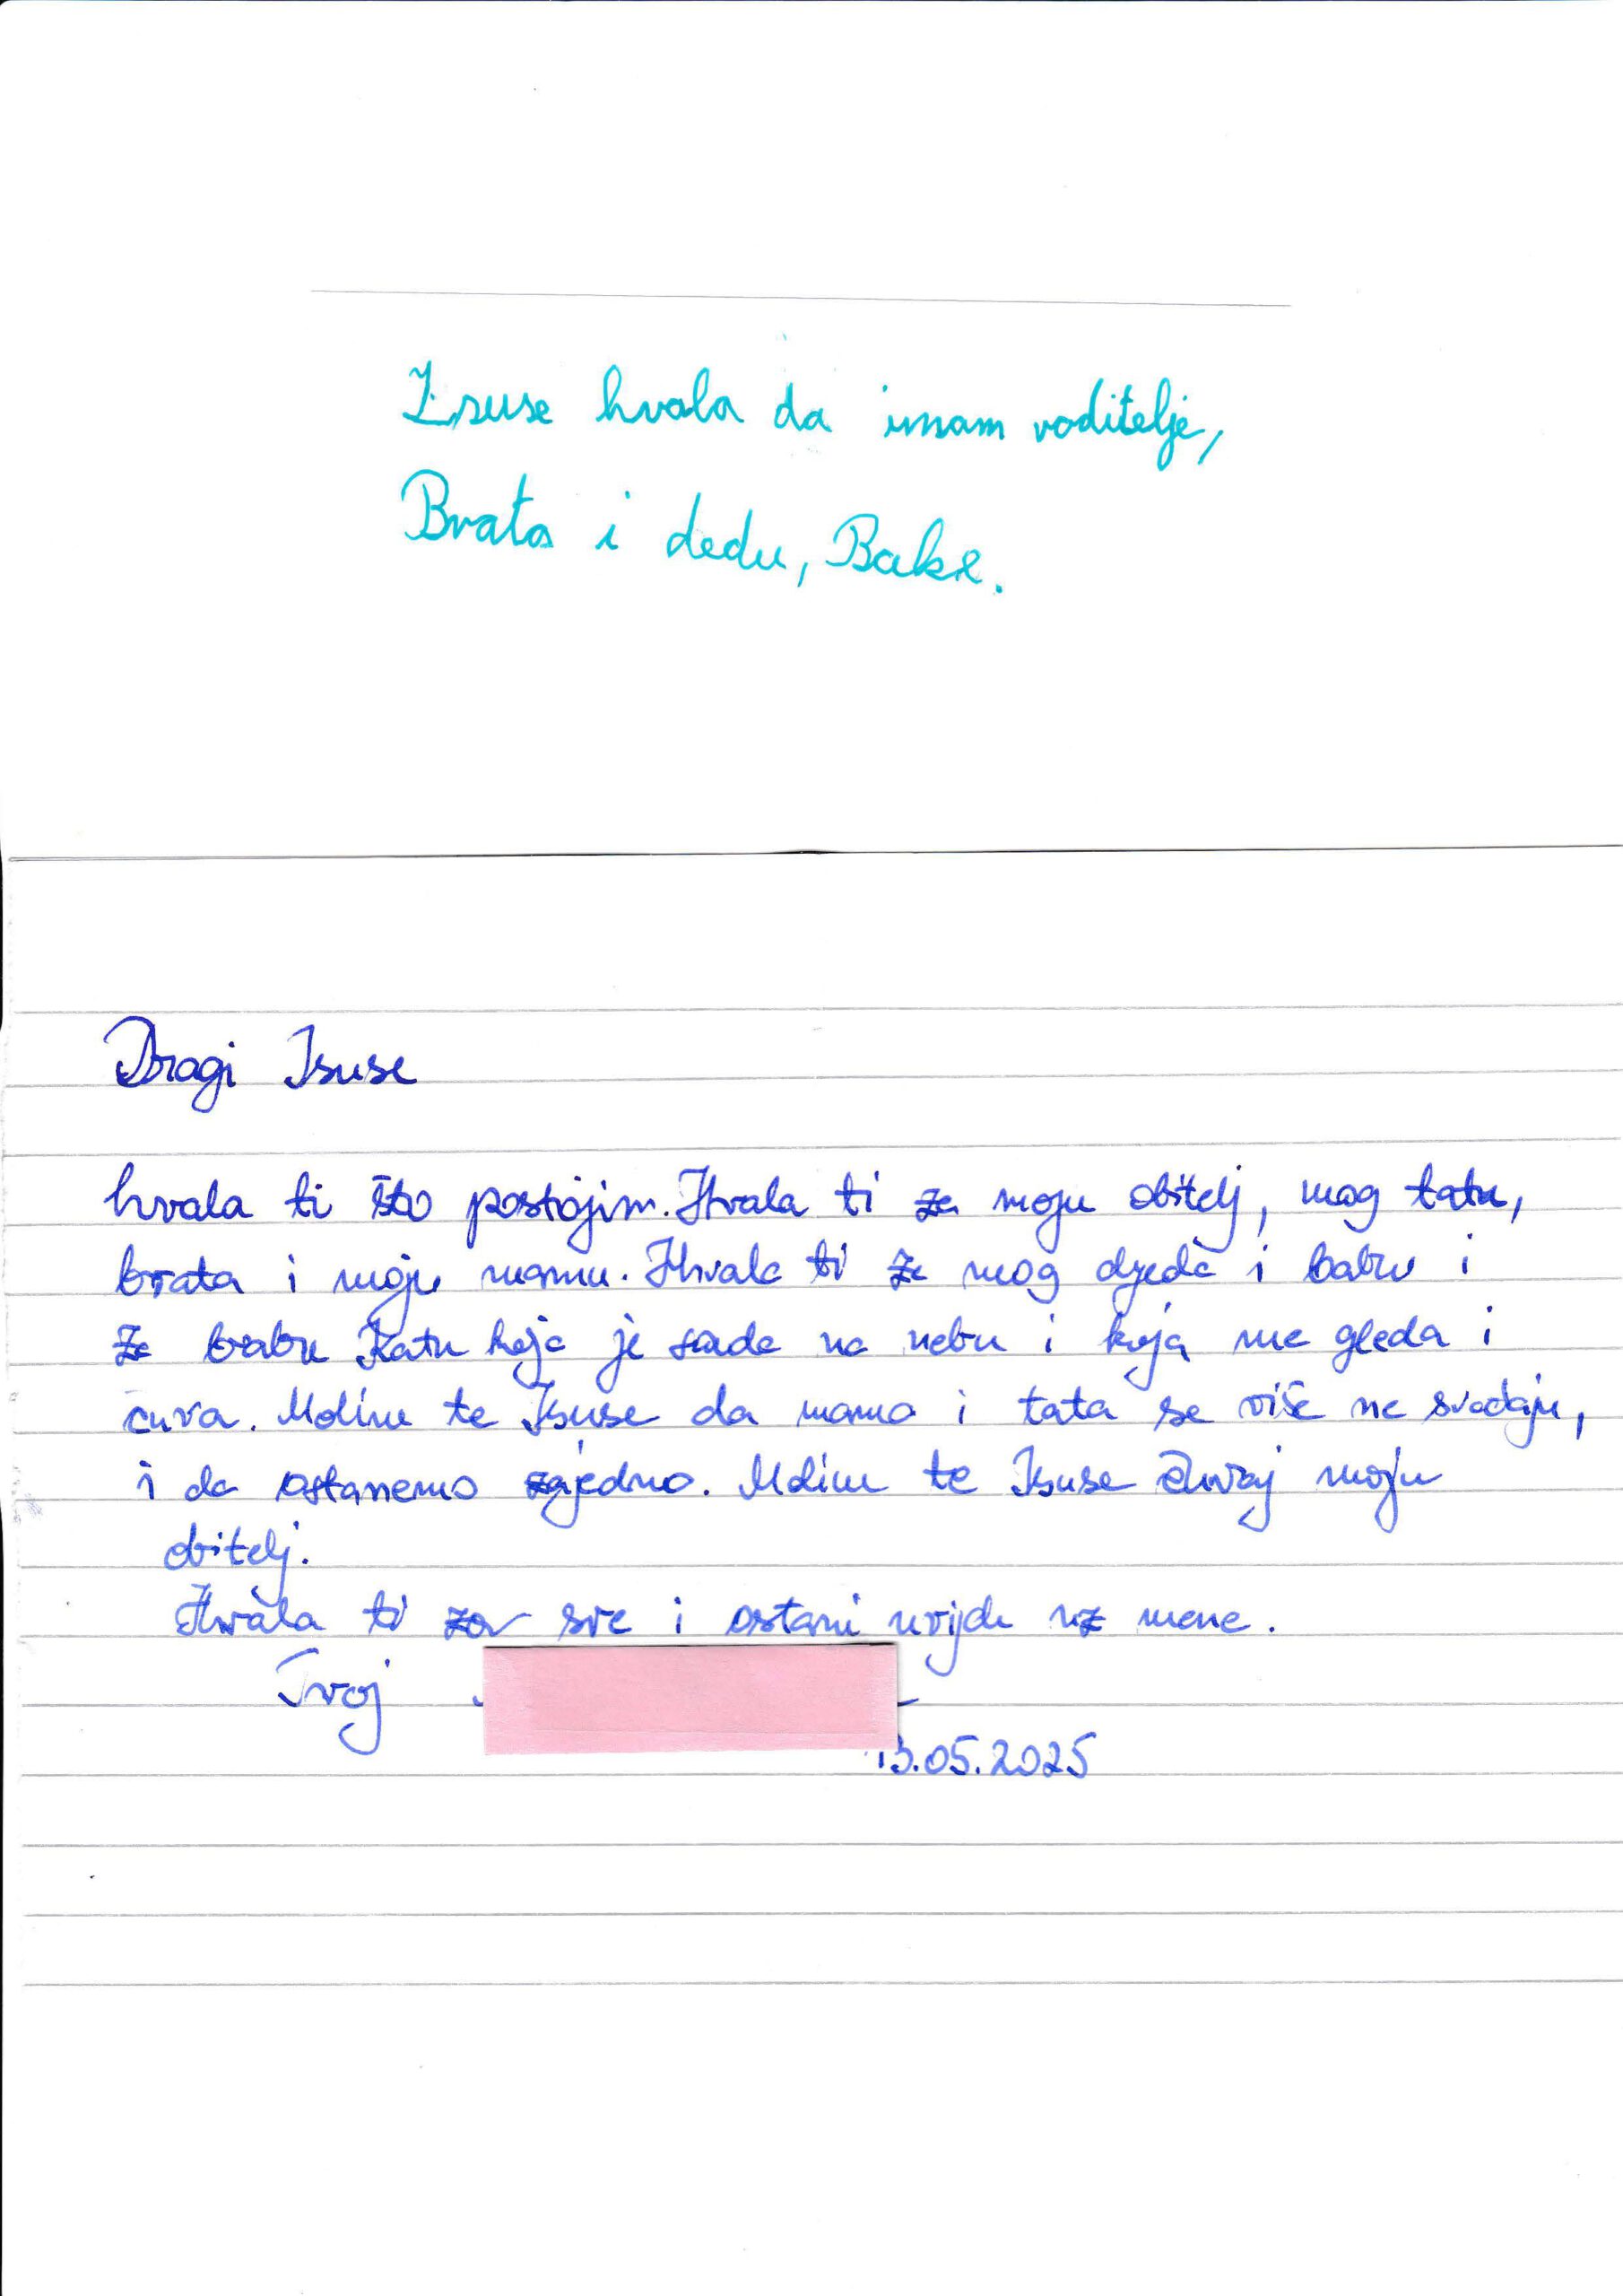 Isuse hvala da imam roditelje,
Brata i dedu, Bake.
Dragi Isuse
hvala ti što postojim. Hvala ti za moju obitelj, mog tatu,
brata i moju mamu. Hvala ti za mog djeda i babu i
za babu Katu koja je sada na nebu i koja me gleda i
čuva. Molim te Isuse da mama i tata se više ne svađaju,
i da ostanemo zajedno. Molim te Isuse čuvaj moju
obitelj.
Hvala ti za sve i ostani uvijek uz mene.
Tvoj
13.05.2025